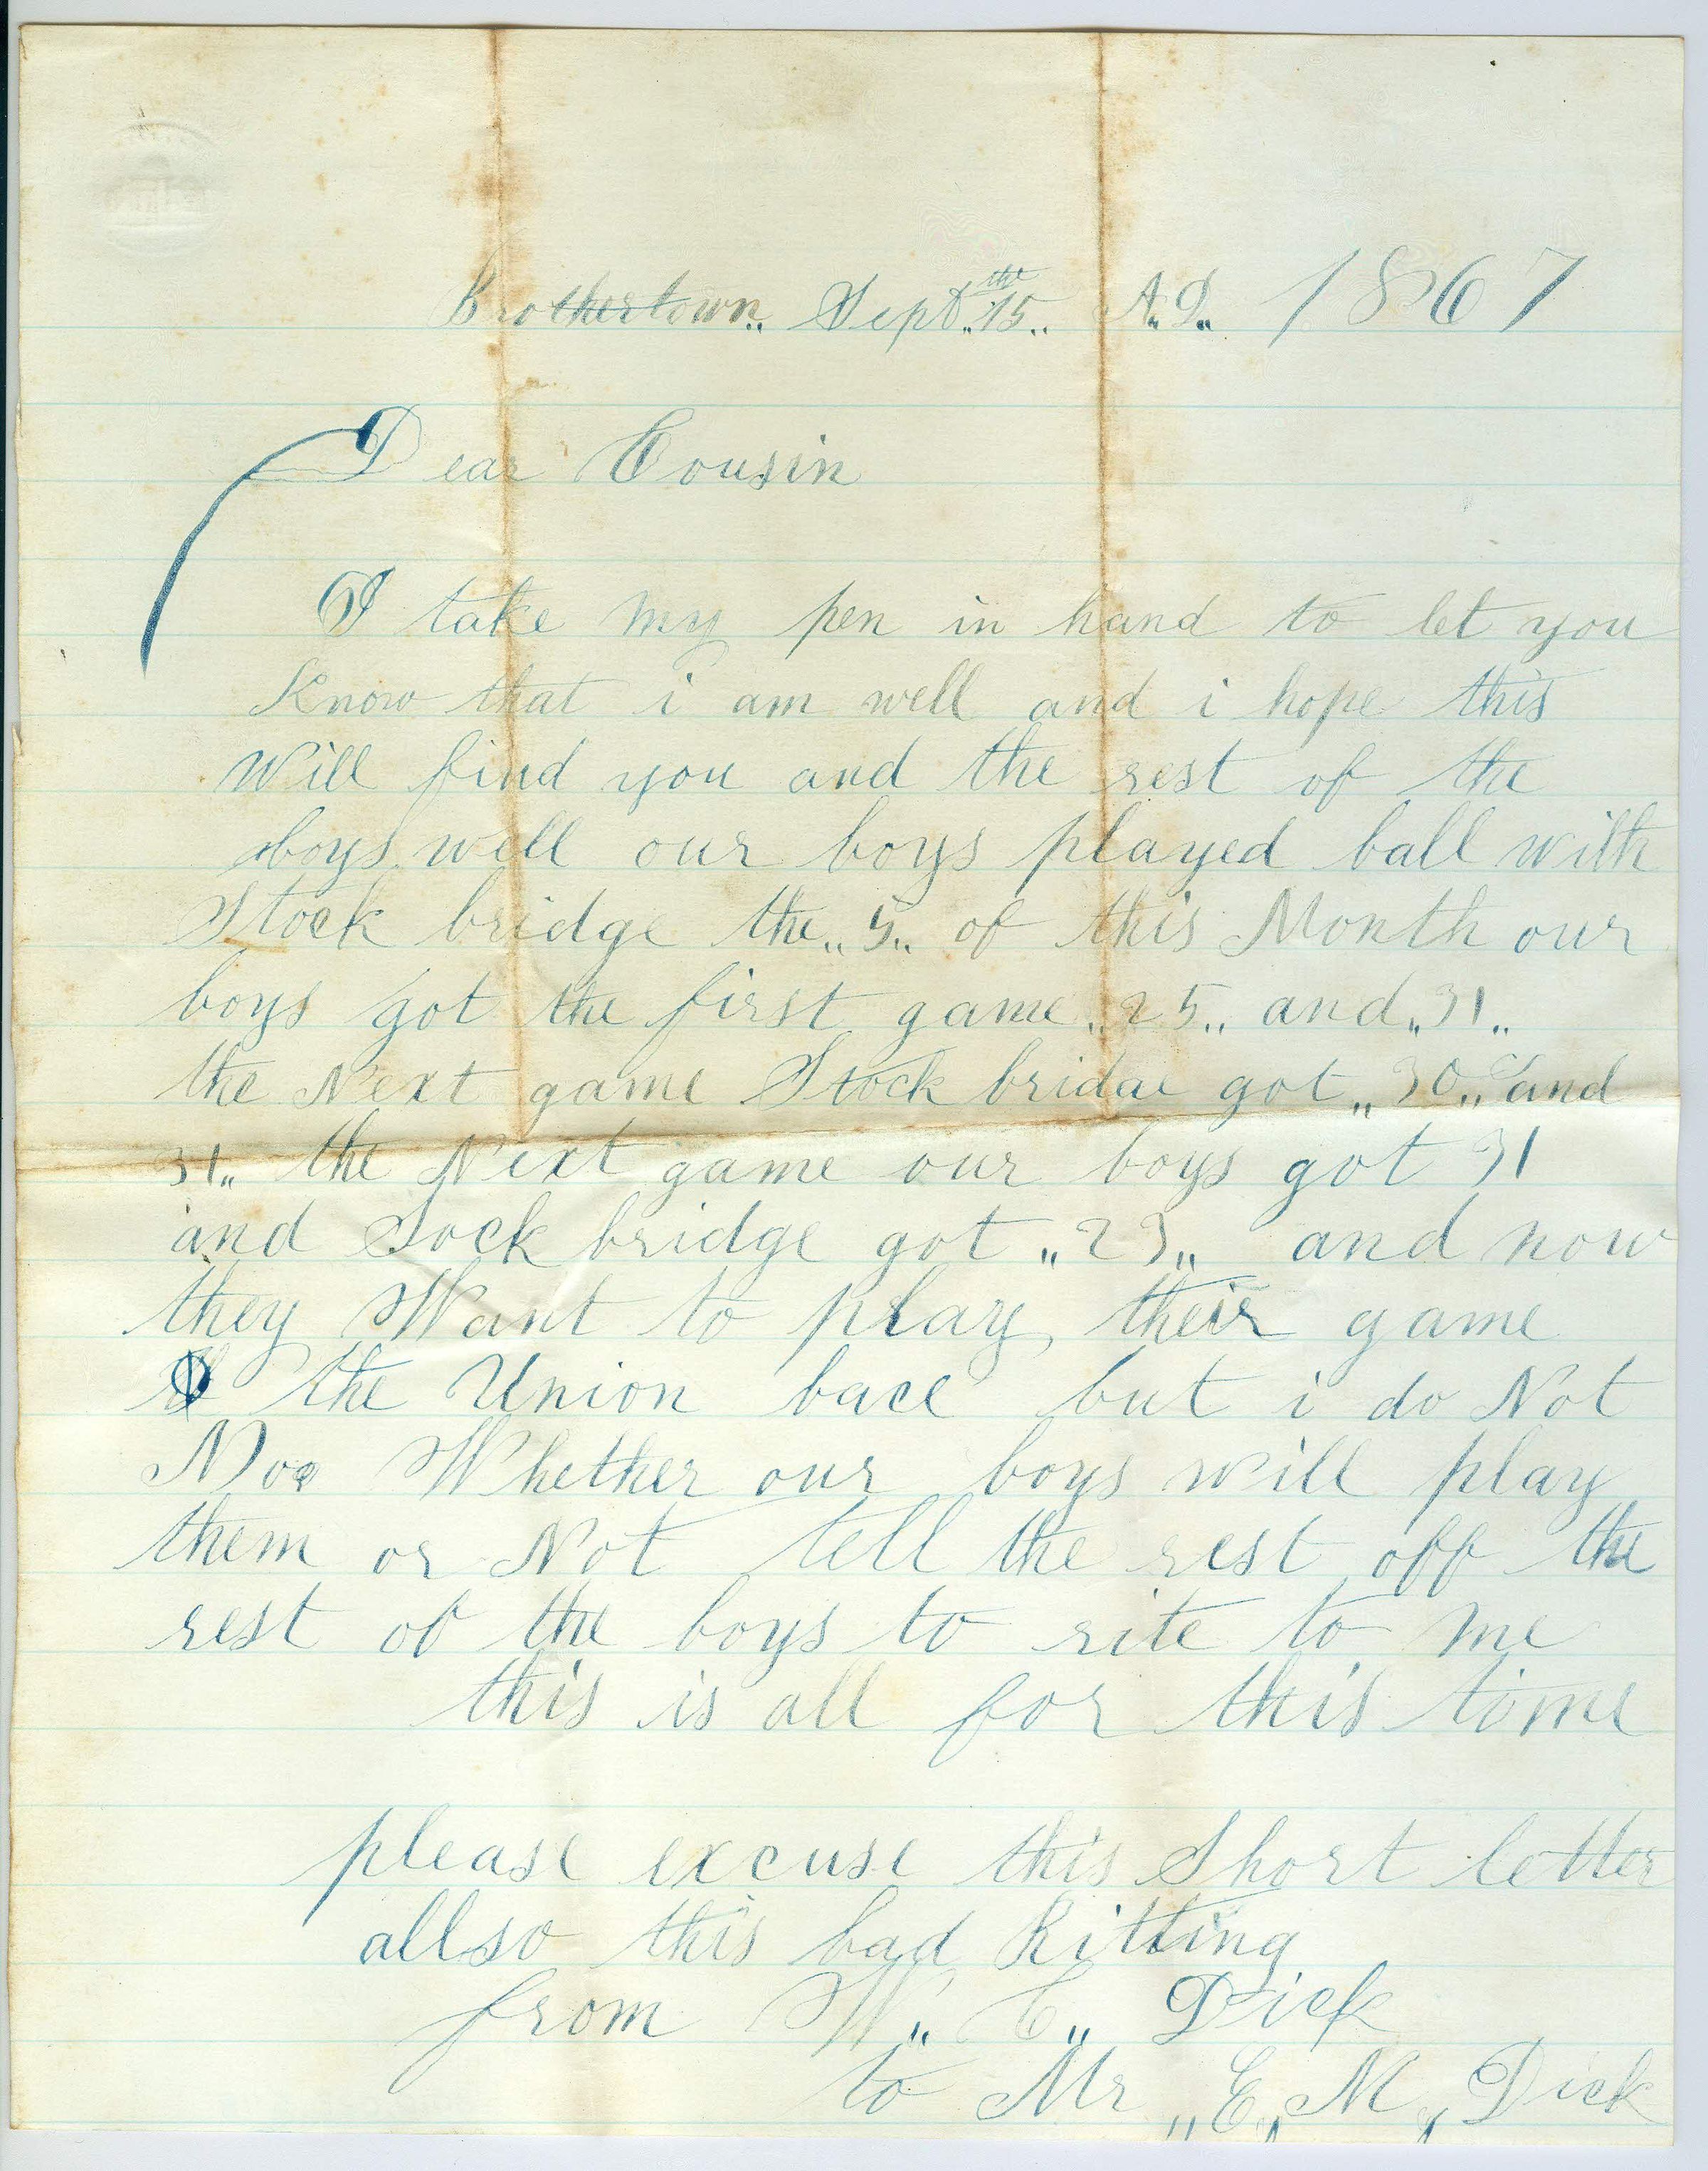 Brothertown„ Sept„ 15th„ A„D„ 1867
Dear Cousin
I take my pen in hand to let you
Know that i am well and i hope this
Will find you and the rest of the
boys well our boys played ball with
Stock bridge the „5„ of this Month our
boys got the first game „25„ and „31„
the Next game Stock bridge got „30„ and
31„ the Next game our boys got 31
and Sock bridge got „23„ and now
they Want to play their game
the Union bace but i do Not
Noo Whether our boys will play
them or Not tell the rest off the
rest of the boys to rite to me
this is all for this time
please excuse this Short letter
allso this bad Ritting
from W„ C„ Dick
to Mr „E„ M„ Dick